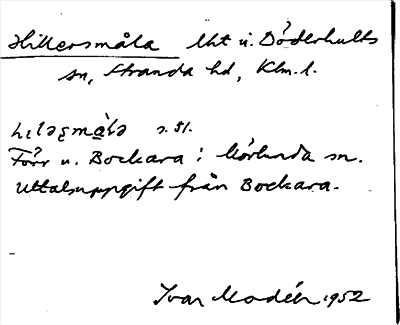 Hillersmåla lht u. Döderhults
sn, Stranda hd, Klm. l.
s. 51.
Förr u. Bockara i Mörlunda sn.
Uttalsuppgift från Bockara.
Ivar Modéer 1952